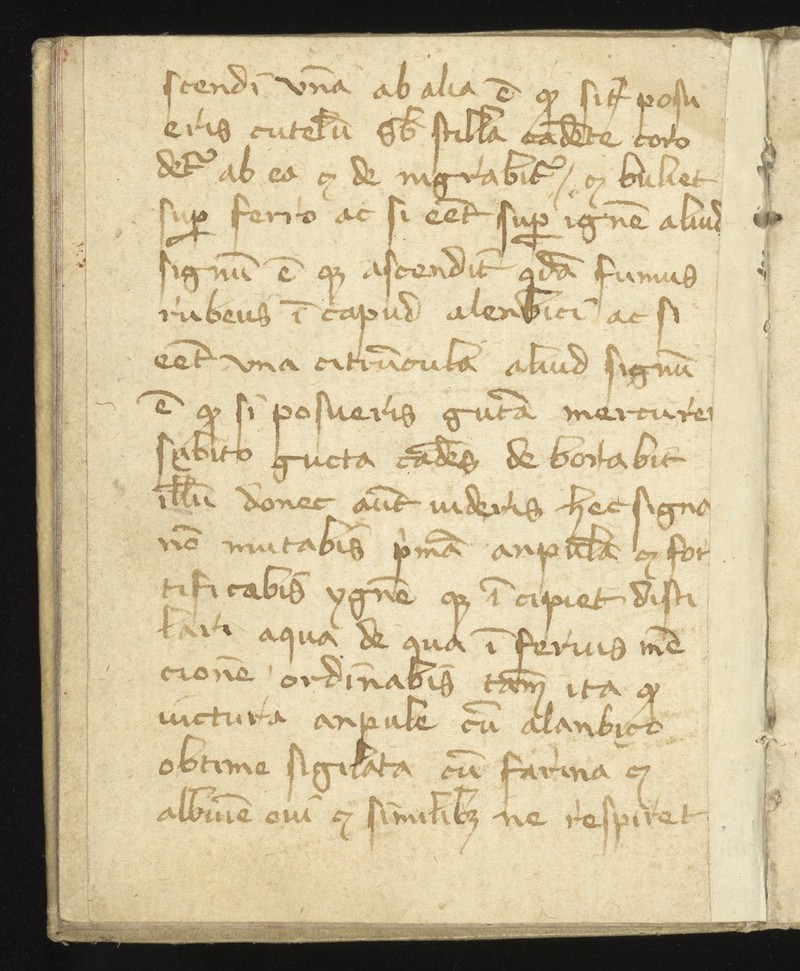 scendi vna ab alia ē qͦ si posu
eris cutelū sb̄ stilla cadēte coro
detʳ ab ea ⁊ de nigrabitʳ / ⁊ buliet
suꝑ ferro ac si eēt suꝑ ignē aliud
signū ē qꝫ ascendit qdā fumus
rubeus ī capud alenbici ac si
eēt vna citrūcula aliud signū
ē qͦ si posueris gutā mercurei
subito gucta cadēs de borabit
illū donec aūt uideris hec signa
nō mutabis pͥmā anpulā ⁊ for
tificabis ygnē qꝫ ī cipiet disti
lari aqua de qua ī ferius mē
cionē ordinabis tam̄ ita qͦ
iuctura anpule cū alanbico
obtime sigilata cū farina ⁊
albumē oui ⁊ similibꝫ ne respiret